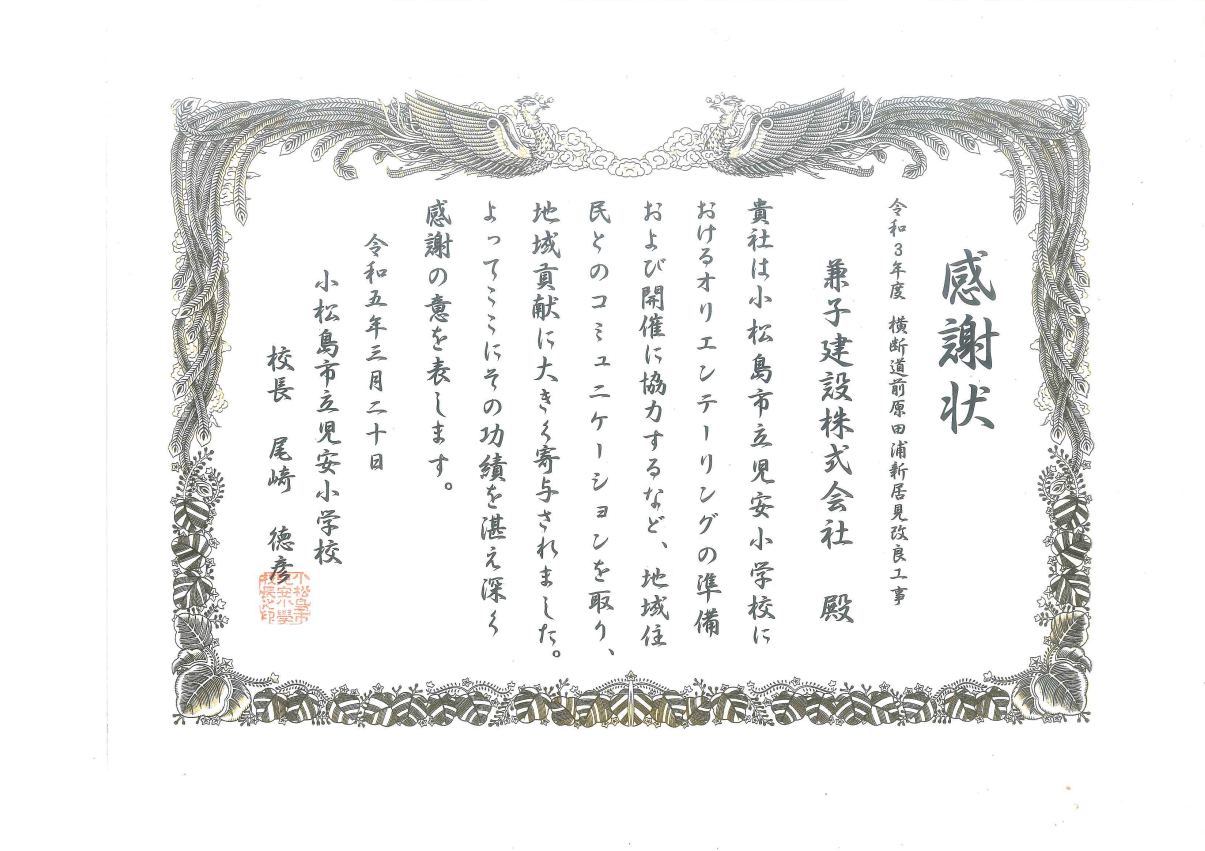 感謝状
令和3年度 横断道前原田浦新居見改良工事
兼子建設株式会社 殿
貴社は小松島市立児安小学校に
おけるオリエンテーリングの準備
および開催に協力するなど、地域住
民とのコミュニケーションを取り、
地域貢献に大きく寄与されました。
よってここにその功績を湛え深く
感謝の意を表します。
令和五年三月二十日
小松島市立児安小学校
校長 尾崎 徳彦
小松島市
児安小學
校長之印